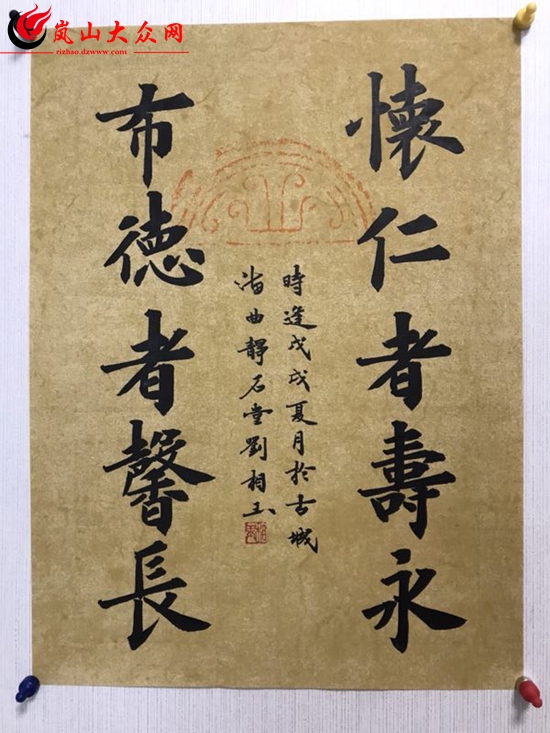 岚山大众网
rizhao.dzwww.com
懐仁者壽永
布德者馨長
時逢戊戌夏月於古城
海曲靜石堂劉相玉